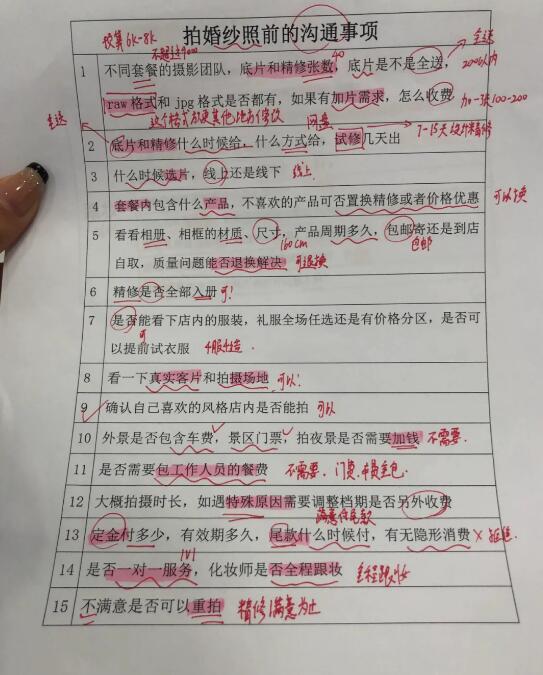 拍婚纱照前的沟通事项
预算6K-8K
不超过9000
全送
1 不同套餐的摄影团队，底片和精修张数，底片是不是全送，
40
200以内
raw格式和jpg格式是否都有，如果有加片需求，怎么收费
加一张100-200
这个格式方便其他地方修改
全送
网盘
7-15天
2 底片和精修什么时候给，什么方式给，试修几天出
3 什么时候选片，线上还是线下 线上
4 套餐内包含什么产品，不喜欢的产品可否置换精修或者价格优惠 可以换
5 看看相册、相框的材质、尺寸，产品周期多久，包邮寄还是到店
160cm
包邮
自取，质量问题能否退换解决 可退换
6 精修是否全部入册 可！
7 是否能看下店内的服装，礼服全场任选还是有价格分区，是否可
可
以提前试衣服 4服4造
8 看一下真实客片和拍摄场地 可以！
9 确认自己喜欢的风格店内是否能拍 可以
10 外景是否包含车费，景区门票，拍夜景是否需要加钱 不需要
11 是否需要包工作人员的餐费 不需要、门票、车费全包
12 大概拍摄时长，如遇特殊原因需要调整档期是否另外收费
满意付尾款
13 定金付多少，有效期多久，尾款什么时候付，有无隐形消费 ×
1V1
14 是否一对一服务，化妆师是否全程跟妆 全程跟妆
15 不满意是否可以重拍 精修满意为止